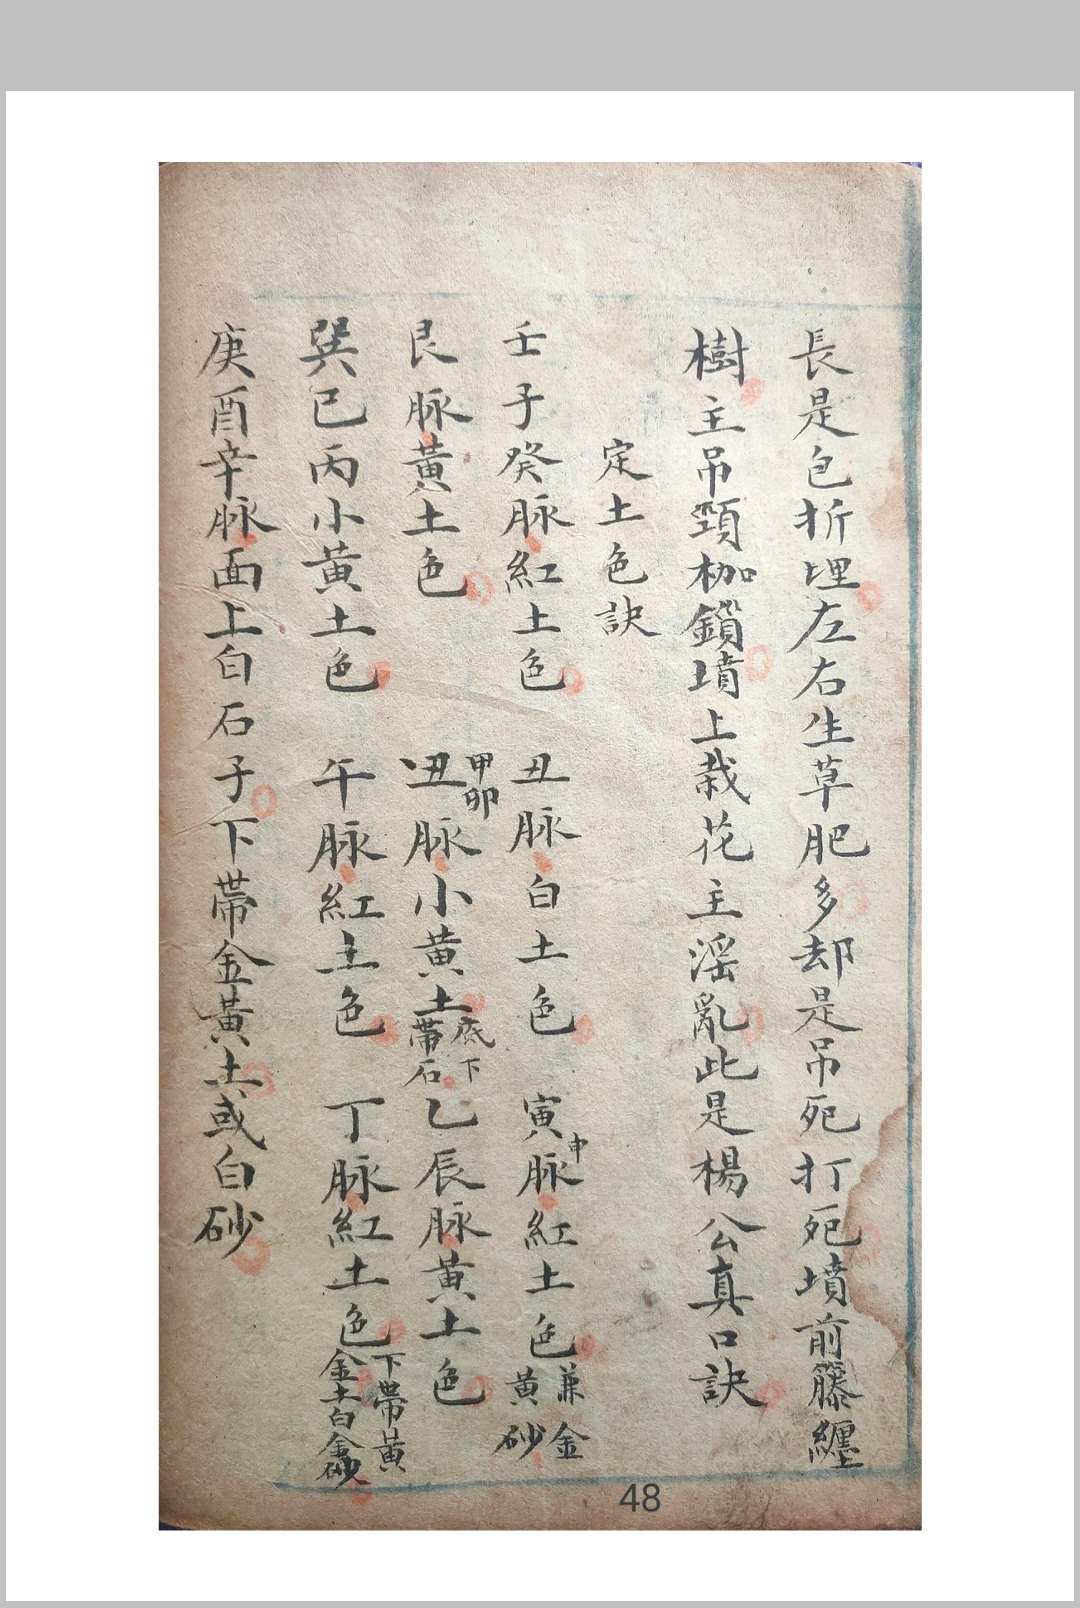 長是包折埋左右生草肥多却是吊死打死墳前籐纏
樹主吊頸枷鎖墳上栽花主淫亂此是楊公真口訣
定土色訣
壬子癸脉紅土色 丑脉白土色 寅申脉紅土色兼金黃砂
艮脉黃土色 甲卯丑脉小黃土底下帶石乙辰脉黃土色
巽巳丙小黃土色 午脉紅土色 丁脉紅土色下帶黃金土白金砂
庚酉辛脉面上白石子下帶金黃土或白砂
48